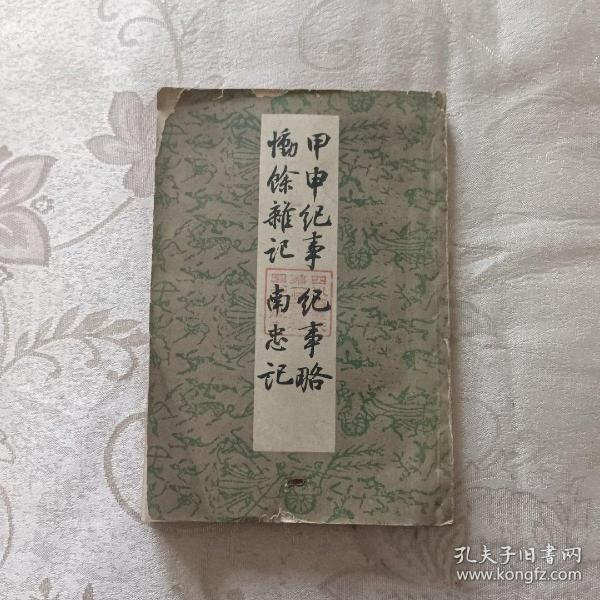 甲申纪事 纪事略
恸馀雜记 南忠记
孔夫子旧书网
www.kongfz.com